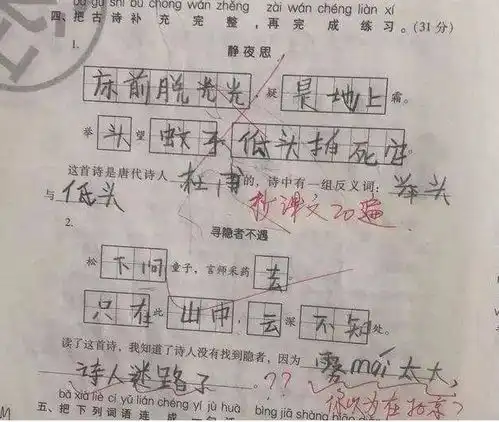 bǎ gǔ shī bǔ chōng wán zhěng zài wán chéng liàn xí
四、把古诗补充完整，再完成练习。(31分)
1.
静夜思
床前脱光光，疑是地上霜。
举头望蚊子，低头拍死它。
这首诗是唐代诗人杜甫的，诗中有一组反义词：举头
与低头
抄课文20遍
2.
寻隐者不遇
松下问童子，言师采药去。
只在此山中，云深不知处。
读了这首诗，我知道了诗人没有找到隐者，因为雾mái太大，
诗人迷路了。??
你以为在北京?
bǎ xià liè cí yǔ lián chéng yí jù huà bìng jiā shàng biāo diǎn
五、把下列词语连成一句话